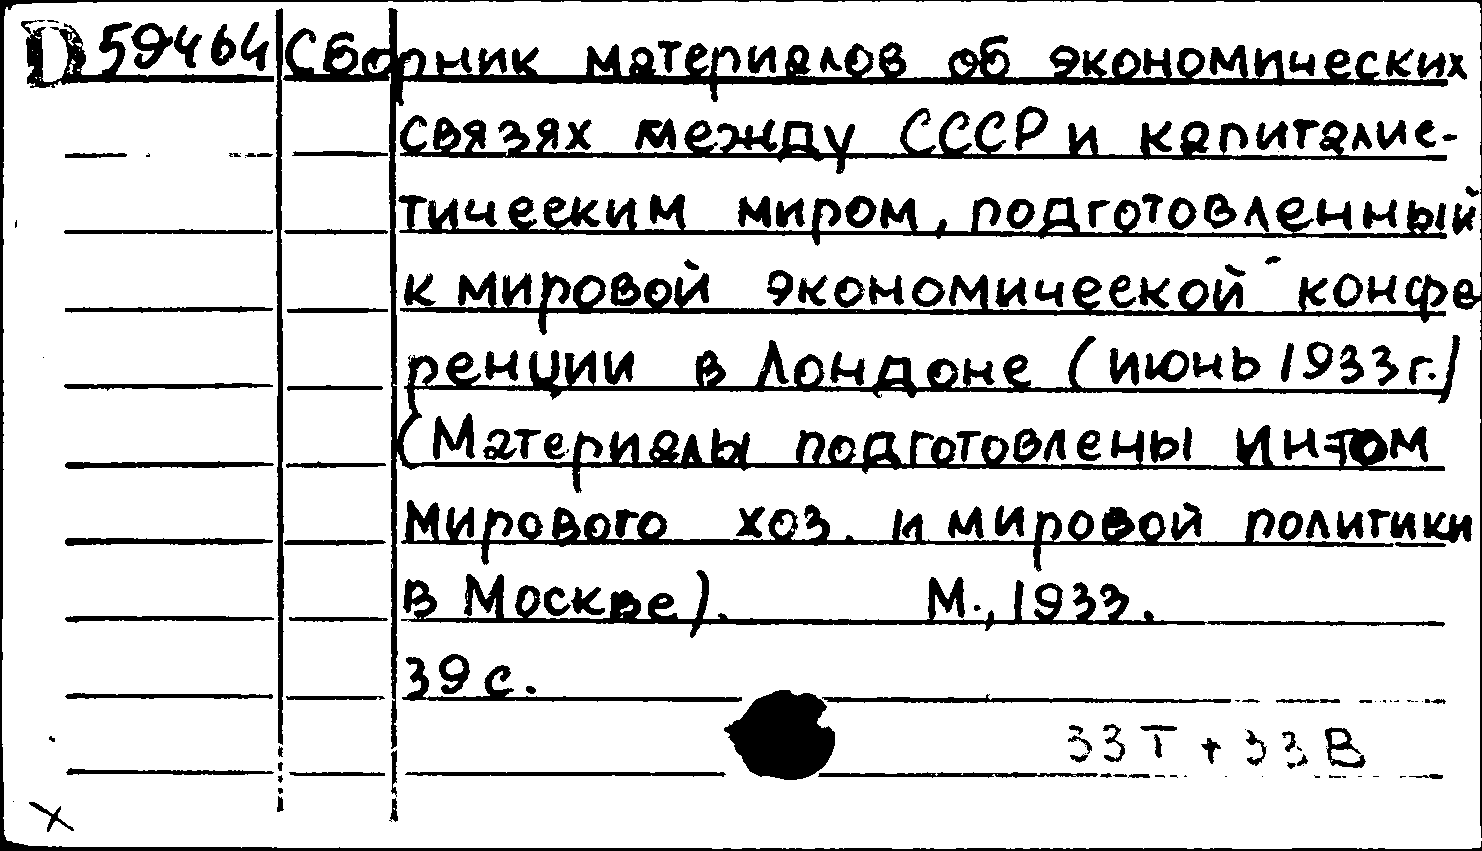 D 59464 Сборник материалов об экономических
связях между СССР и капиталис-
тическим миром, подготовленный
к мировой экономической конфе
ренции в Лондоне (июнь 1933 г.)
(Материалы подготовлены ин-том
мирового хоз. и мировой политики
в Москве). М., 1933.
39 с.
33Т + 33В